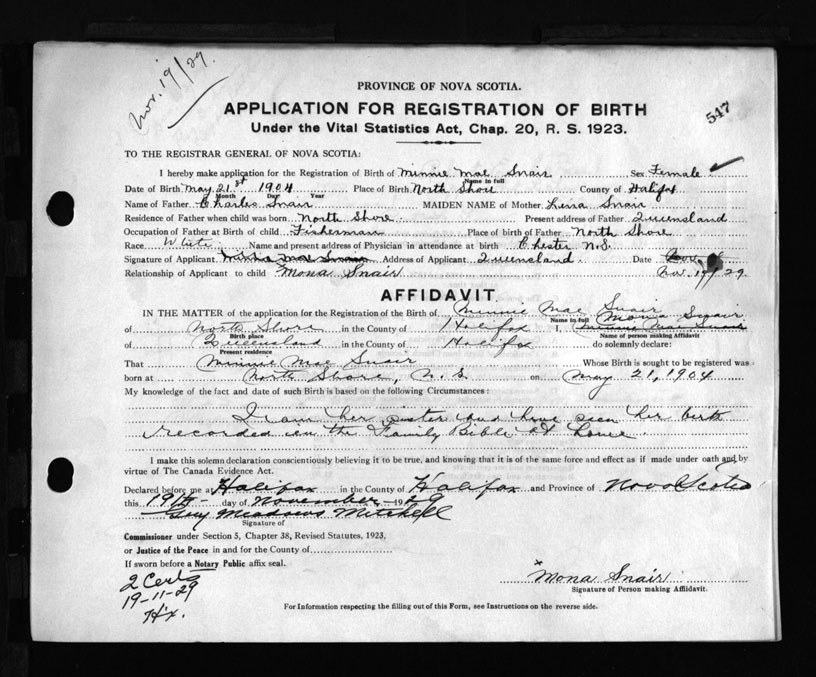 Nov. 19/29.
PROVINCE OF NOVA SCOTIA.
547
APPLICATION FOR REGISTRATION OF BIRTH
Under the Vital Statistics Act, Chap. 20, R. S. 1923.
TO THE REGISTRAR GENERAL OF NOVA SCOTIA:
I hereby make application for the Registration of Birth of Minnie Mae Snair Sex Female
Name in full
Date of Birth May 21st 1904 Place of Birth North Shore County of Halifax
Month Day Year
Name of Father Charles Snair MAIDEN NAME of Mother Lena Snair
Residence of Father when child was born North Shore Present address of Father Queensland
Occupation of Father at Birth of child Fisherman Place of birth of Father North Shore
Race White Name and present address of Physician in attendance at birth Chester N.S.
Signature of Applicant Minnie Mae Snair Address of Applicant Queensland. Date Nov.
Relationship of Applicant to child Mona Snair Nov. 19/29
AFFIDAVIT.
IN THE MATTER of the application for the Registration of Birth of Minnie Mae Snair
Name in full
of North Shore in the County of Halifax I, Minnie Mae Snair Mona Snair
Birth place Name of person making Affidavit
of Queensland in the County of Halifax do solemnly declare:
Present residence
That Minnie Mae Snair Whose Birth is sought to be registered was
born at North Shore, N.S. on May 21, 1904
My knowledge of the fact and date of such Birth is based on the following Circumstances:
I am her sister and have seen her birth
recorded in the Family Bible at home.
I make this solemn declaration conscientiously believing it to be true, and knowing that it is of the same force and effect as if made under oath and by
virtue of The Canada Evidence Act.
Declared before me at Halifax in the County of Halifax and Province of Nova Scotia
this 19th day of November 1929
Guy Meadows Mitchell
Signature of
Commissioner under Section 5, Chapter 38, Revised Statutes, 1923,
or Justice of the Peace in and for the County of
If sworn before a Notary Public affix seal.
2 Certs
19-11-29
Hx.
x Mona Snair
Signature of Person making Affidavit.
For Information respecting the filling out of this Form, see Instructions on the reverse side.